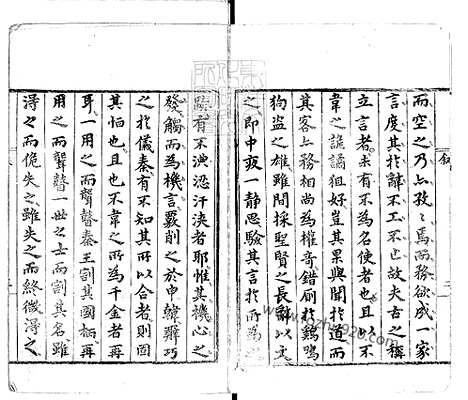 叙
而空之乃亦孜〻焉而務欲成一家
言度其於辭不工不已故夫古之稱
立言者未有不為名使者也且以不
韋之詭譎狙好豈其果與聞於道而
其客亦務相尚為權奇錯廁於鷄鳴
狗盜之雄雖間採聖賢之長辭以文
之即中夜一靜思驗其言於所為之
際有不泚涊汗浹者耶惟其機心之
發觸而為機言覈削之於申韓辯巧
之於儀秦有不知其所以合者則固
其怕也且也不韋之所為千金者再
耳一用之而聾瞽秦王割其國柄再
用之而聾瞽一世之士而割其名雖
淂之而俛失之雖失之而終徼淂之